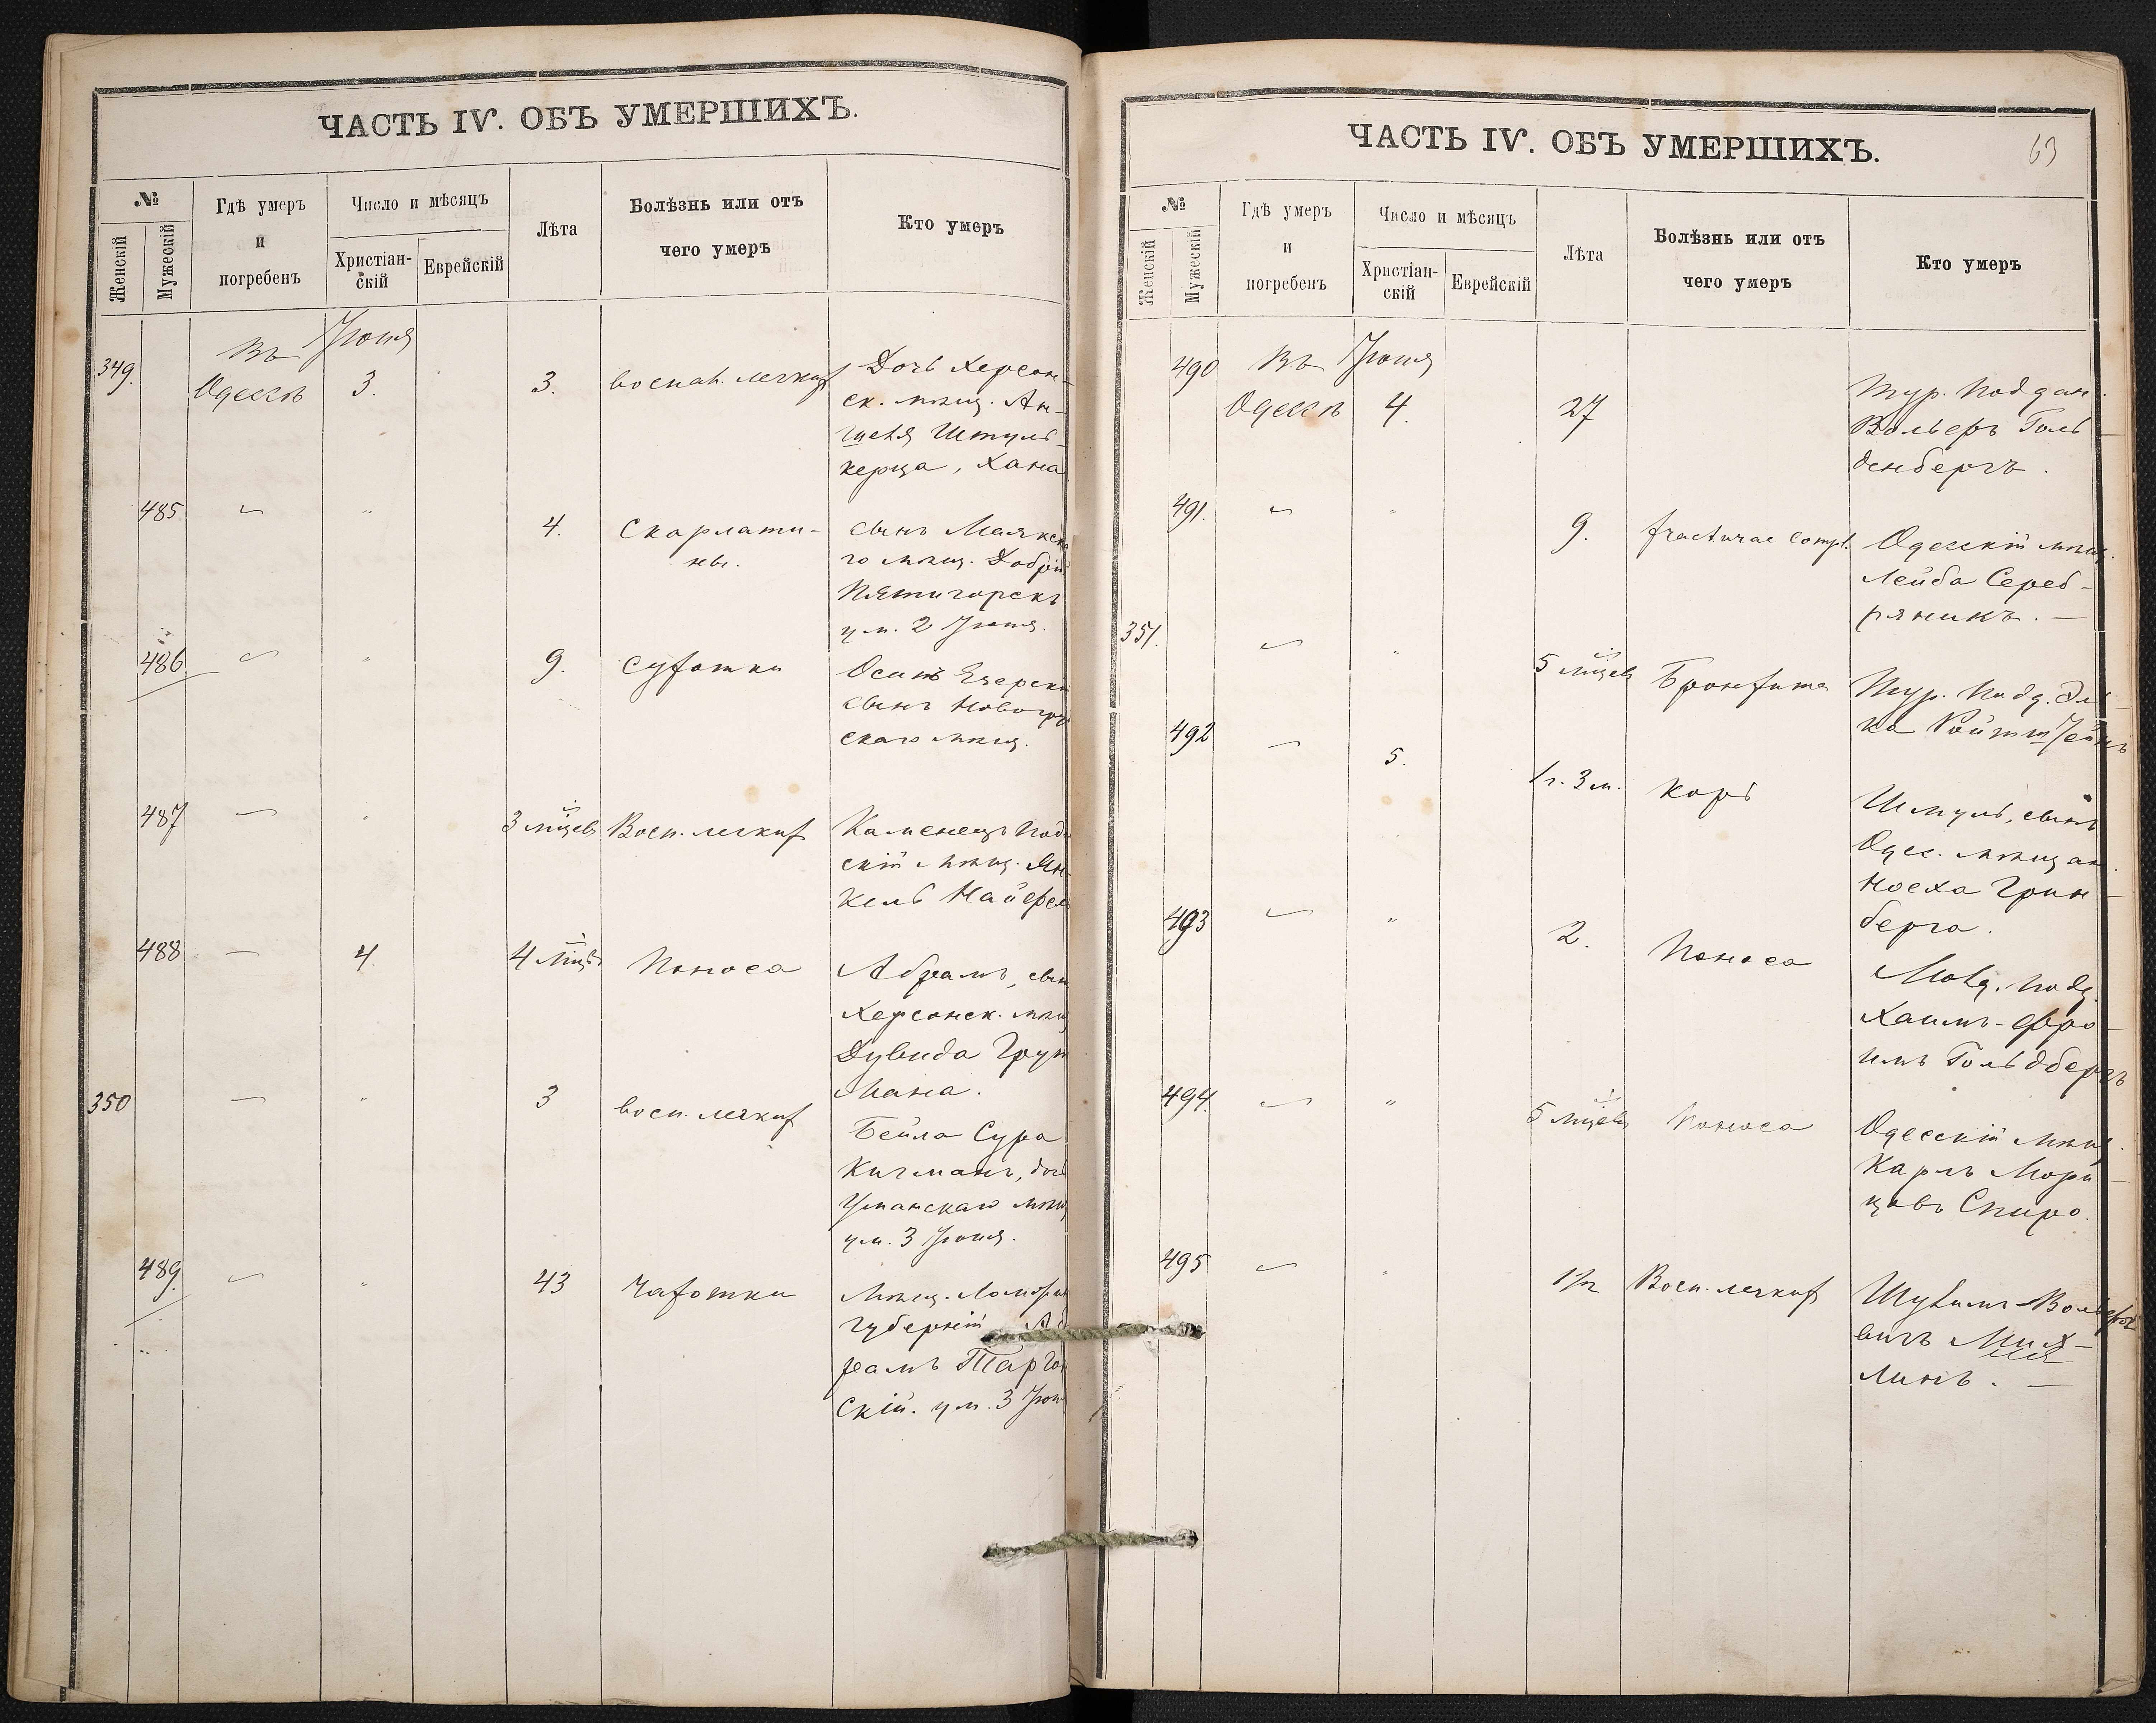 ЧАСТЬ IV. ОБЪ УМЕРШИХЪ.
№
Женскій
Мужескій
Гдѣ умеръ
и
погребенъ
Число и мѣсяцъ
Христіан-
скій
Еврейскій
Лѣта
Болѣзнь или отъ
чего умеръ
Кто умеръ
349.
Въ Іюня
Одессѣ 3. 3. воспал. легкихъ Дочь Херсон-
ск. мѣщ.
Хана
485 " 4. Скарлати- сынъ Маякска
ны. го мѣщ.
Пятигорскъ
ум. 2 Іюня.
486 " 9. Осипъ
сынъ
скаго мѣщ.
487 " 3 мѣсцевъ Восп. легкихъ Каменецъ Под
скій мѣщ. Ян-
кель
488 4. 4 мѣсц. Поноса Абрамъ, сын
Херсонск. мѣщ
Дувида Грут
мана.
350 " 3 восп. легкихъ Бейла Сура
Кигманъ, доч
Уманскаго мѣщ
ум. 3 Іюня.
489. " 43 Чахотки Мѣщ.
губерніи Аб
рамъ
скій. ум. 3 Іюн
ЧАСТЬ IV. ОБЪ УМЕРШИХЪ.
63
№
Женскій
Мужескій
Гдѣ умеръ
и
погребенъ
Число и мѣсяцъ
Христіан-
скій
Еврейскій
Лѣта
Болѣзнь или отъ
чего умеръ
Кто умеръ
490 Въ Іюня
Одессѣ 4. 27 Тур. поддан.
Вольфъ Голь-
денбергъ.
491. " 9. fracturae compl. Одесскій мѣщ.
Лейба Сереб-
ряникъ. —
351. " 5 мѣсцевъ Бронхита Тур. подд.
ка Ройтштейнъ
492 5. 1 г. 3 м. Корь Шмуль, сынъ
Одес. мѣщан.
Носха Грин-
берга.
493 " 2. Поноса Молд. подд.
Хаимъ-Фро-
имъ Гольдбергъ
494. " 5 мѣсцевъ Поноса Одесскій мѣщ.
Карлъ Мори-
цовъ Спиро.
495 " 1½ Восп. легкихъ
вичъ
линъ. —